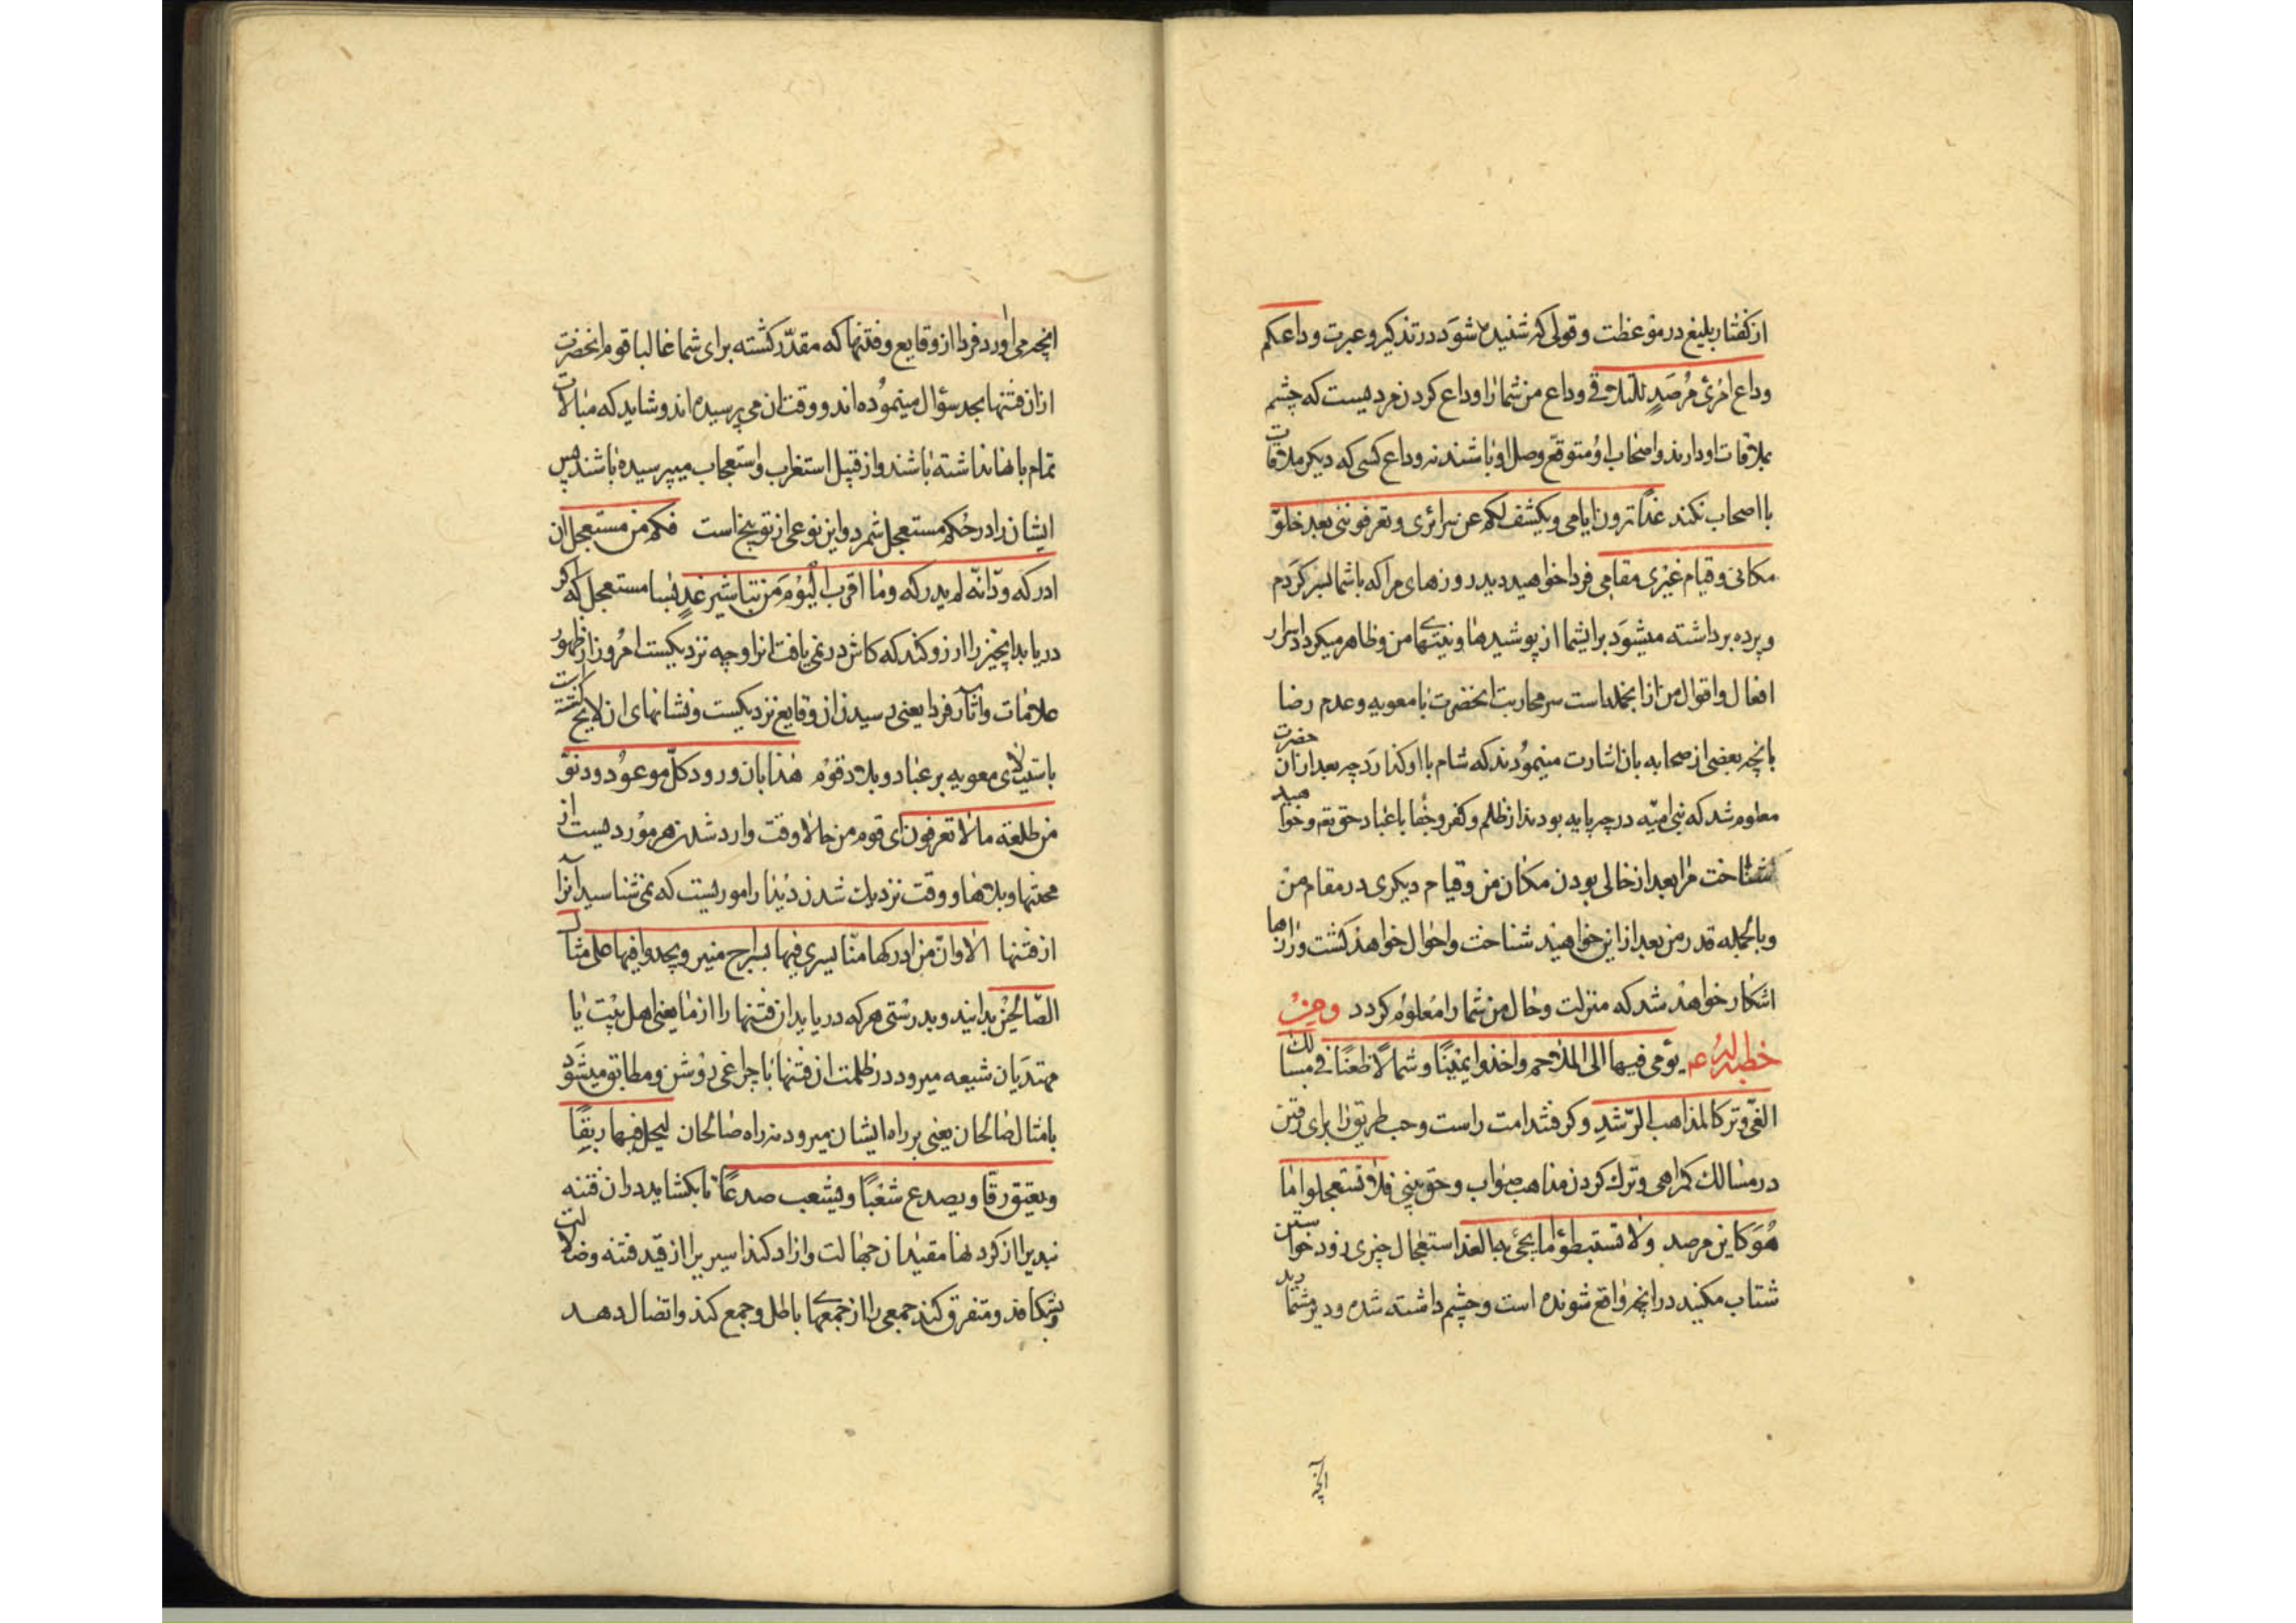 از گفتار بلیغ در موعظت و قولی که شنیده شود در تذکیر و عبرت وداعکم
وداع امرئ مرصد للتلاقی وداع من شما را وداع کردن مرد یست که چشم
بملاقات او دارند و اصحاب او متوقع وصل او باشند نه وداع کسی که دیگر ملاقات
با اصحاب نکند غدا ترون ایامی و یکشف لکم عن سرائری و تعرفوننی بعد خلوّ
مکانی و قیام غیری مقامی فردا خواهید دید روزهای مرا که با شما بسر کردم
و پرده برداشته میشود برای شما از پوشیدها و نیتهای من و ظاهر میکردد اسرار
افعال و اقوال من از انجمله است سر محاربت انحضرت با معویه و عدم رضا
بانچه بعضی از صحابه بان اشارت مینمودند که شام با او کذارد چه بعد از ان حضرت
معلوم شد که بنی امیّه در چه پایه بودند از ظلم و کفر و جفا با عباد حق تع و خواهید
شناخت مرا بعد از خالی بودن مکان من و قیام دیکری در مقام من
و بالجمله قدر من بعد از این خواهند شناخت و احوال خواهد کشت و رازها
اشکار خواهد شد که منزلت و حال من شما را معلوم کردد ومن
خطبة له ع یومی فیها الی الملاحم واخذوا یمینا و شمالا ظعنا فی مسالک
الغیّ و ترکا لمذاهب الرّشد و کرفتند امت راست و چپ طریق را برای رفتن
در مسالک کمراهی و ترک کردن مذاهب صواب و حق بینی فلا تستعجلوا ما
هو کاین مرصد ولا تستبطؤا ما یجیٔ به الغد استعجال چیزی زود خواستن
شتاب مکنید در انچه واقع شونده است و چشم داشته شده و دیر مشمارید
آنچه
انچه می اورد فردا از وقایع و فتنها که مقدّر کشته برای شما غالبا قوم انحضرت
از ان فتنها بجد سؤال مینموده اند و وقت ان می پرسیده اند و شاید که مبالات
تمام بانها نداشته باشند و از قبیل استغراب و استعجاب میپرسیده باشند پس
ایشان را در حکم مستعجل شمرد و این نوعی از توبیخ است فکم من مستعجل ان
ادرکه ودّ انّه لم یدرکه وما اقرب الیوم من تباشیر غد بسا مستعجل که اکر
دریابد انچیز را ارزو کند که کاش در نمی یافت انرا و چه نزدیکست امروز از ظهور
علامات و اثار فردا یعنی رسیدن ان وقایع نزدیکست و نشانهای ان لایح کشته است
باستیلای معویه بر عباد و بلاد قوم هذا ابان ورود کلّ موعود ودنوّ
من طلعة ما لا تعرفون ای قوم من حالا وقت وارد شدن هر موردیست از
محنتها و بلاها و وقت نزدیک شدن دیدار اموریست که نمی شناسید آنرا
از فتنها الا وانّ من ادرکها منّا یسری فیها بسراج منیر ویحذوا فیها علی مثال
الصّالحین بدانید و بدرستی هر که دریابد ان فتنها را از ما یعنی اهل بیت یا
مهتدیان شیعه میرود در ظلمت ان فتنها با چراغی روشن و مطابق میشود
بامثال صالحان یعنی بر راه ایشان میرود نه راه ضالان لیحل فیها ربقًا
ویعتق رقّا ویصدع شعبًا ویشعب صدعًا تا بکشاید در ان فتنه
بندیرا از کردنها مقیدان جهالت و ازاد کند اسیریرا از قید فتنه و ضلالت
و بشکافد و متفرق کند جمعی را از جمعهای باطل و جمع کند و اتصال دهد